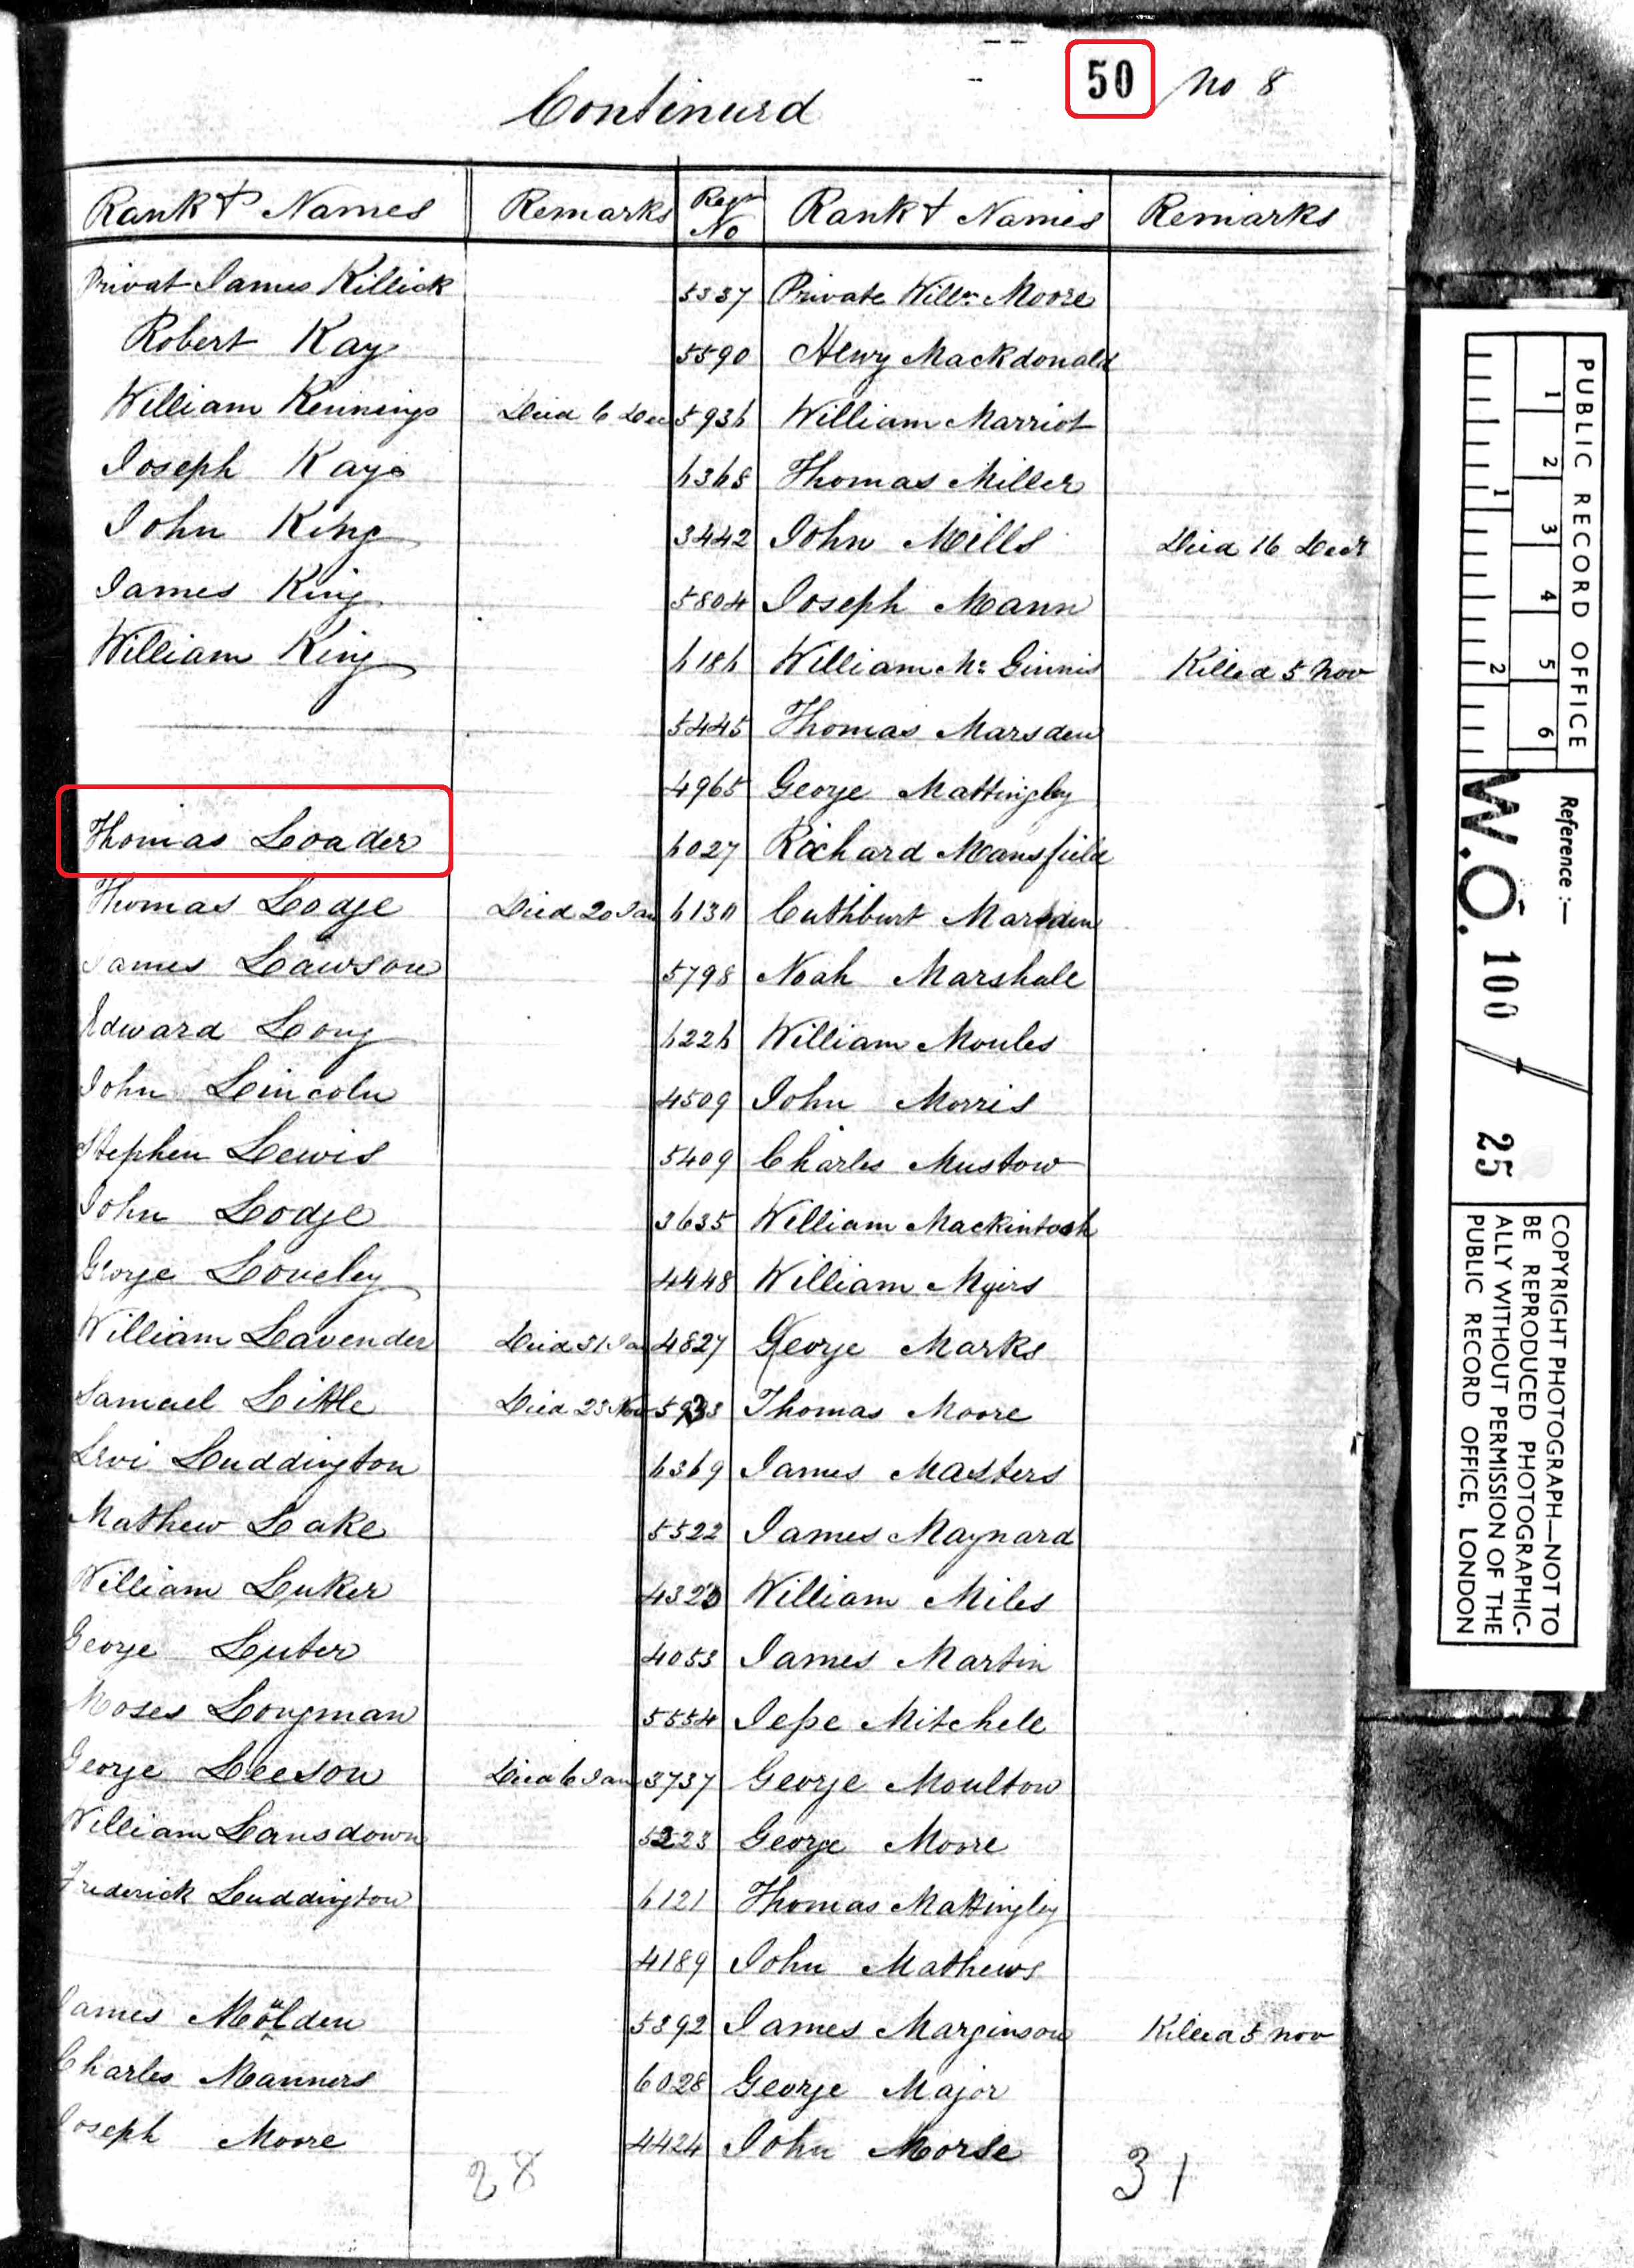 50 No 8
Continurd
Rank & Names Remarks Regl No Rank & Names Remarks
Privat James Killick 5337 Private Willm Moore
Robert Kay 5590 Henry Mackdonald
William Kennings Died 6 Dec 5936 William Marriot
Joseph Kaye 6368 Thomas Miller
John King 3442 John Mills Died 16 Decr
James King 5804 Joseph Mann
William King 6186 William Mc Ginnis Killed 5 Nov
5445 Thomas Marsden
4965 George Mattingley
Thomas Loader 6027 Richard Mansfield
Thomas Lodge Died 20 Jan 6130 Cuthburt Marsden
James Lawson 5798 Noah Marshall
Edward Long 6226 William Moules
John Lincoln 4509 John Morris
Stephen Lewis 5409 Charles Mustow
John Lodge 3635 William Mackintosh
George Loveley 4448 William Myirs
William Lavender Died 31 Jan 4827 George Marks
Samuel Little Died 23 Nov 5933 Thomas Moore
Levi Luddington 6369 James Masters
Mathew Lake 5522 James Maynard
William Luker 4320 William Miles
George Luter 4053 James Martin
Moses Longman 5554 Jesse Mitchell
George Leeson Died 6 Jan 3737 George Moulton
William Lansdown 5223 George Moore
Frederick Luddington 6121 Thomas Mattingley
4189 John Mathews
James Molden 5392 James Marginson Killed 5 Nov
Charles Manners 6028 George Major
Joseph Moore 4424 John Morse
28 31
PUBLIC RECORD OFFICE
1 2 3 4 5 6
1 2
Reference :—
W.O. 100 / 25
COPYRIGHT PHOTOGRAPH—NOT TO
BE REPRODUCED PHOTOGRAPHIC-
ALLY WITHOUT PERMISSION OF THE
PUBLIC RECORD OFFICE, LONDON